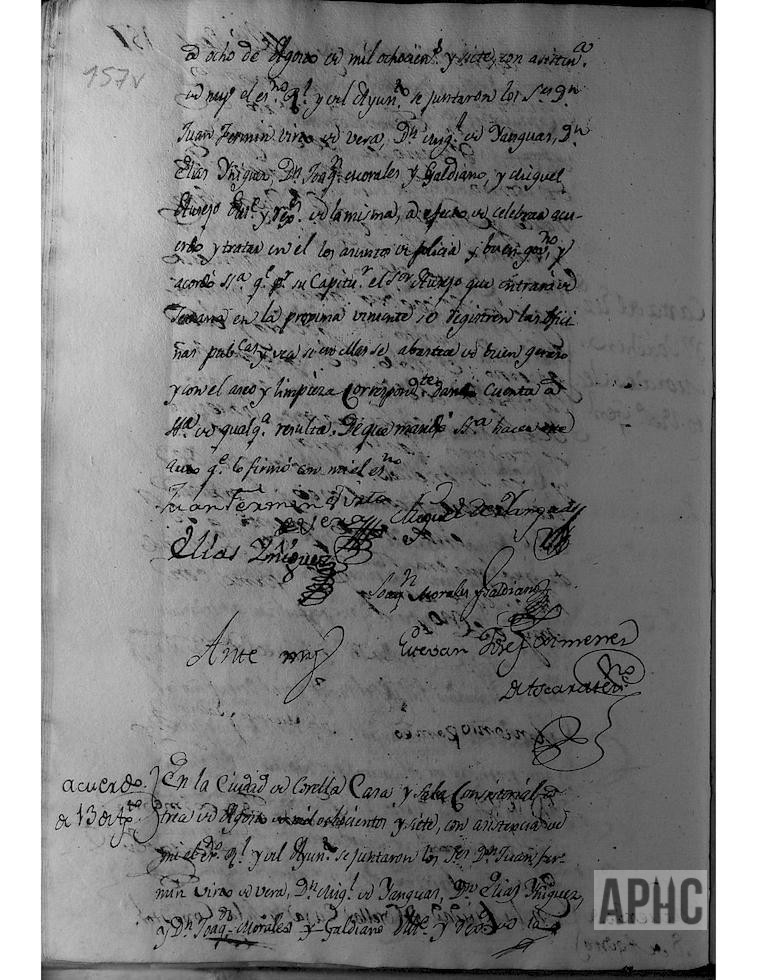 157v
a ocho de Agosto de mil ochocien.s y siete, con asisten.a
de mi el es.no R.l y del Ayun.to se juntaron los S.res D.n
Juan Fermin Virto de vera, D.n Mig.l de Yanguas, D.n
Elias Yñiguez, D.n Joaq.n Morales y Galdiano, y Miguel
Alcc.e y Reg.s de la misma, a efecto de celebrar acu-
erdo y tratar en el los asuntos de policia y buen gov.no, y
acordó S.ria q.e p.r su Capitu.r el S.or que entrará de
Semana en la proxima viniente se registren las ofici
nas pub.cas y vea si en ellas se abastece de buen genero
y con el aseo y limpieza Correspond.te dando cuenta a
S.ria de qualq.a resulta. De que mandó S.ria hacer este
auto q.e lo firmó con mi el es.no
Juan Fermin Virto
de vera
Miguel de Yanguas
Elias Yñiguez
Joaq.n Morales y Galdiano
Ante mi
Estevan Josef Ximenez
de Azcarate
acuerdo
de 13 de Ag.to
En la Ciudad de Corella Casa y Sala Consistorial a
trece de Agosto de mil ochocientos y siete, con asistencia de
mi el es.no R.l y del Ayun.to se juntaron los S.res D.n Juan Fer-
min Virto de vera, D.n Mig.l de Yanguas, D.n Elias Yñiguez,
y D.n Joaq.n Morales y Galdiano Alc.e y Reg.s de la
APHC